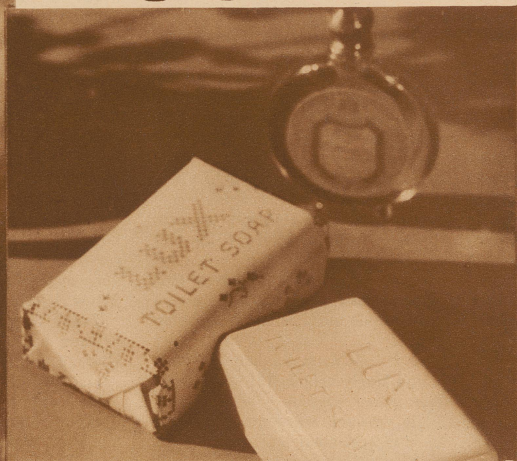 LUX
TOILET SOAP
LUX
TOILET SOAP